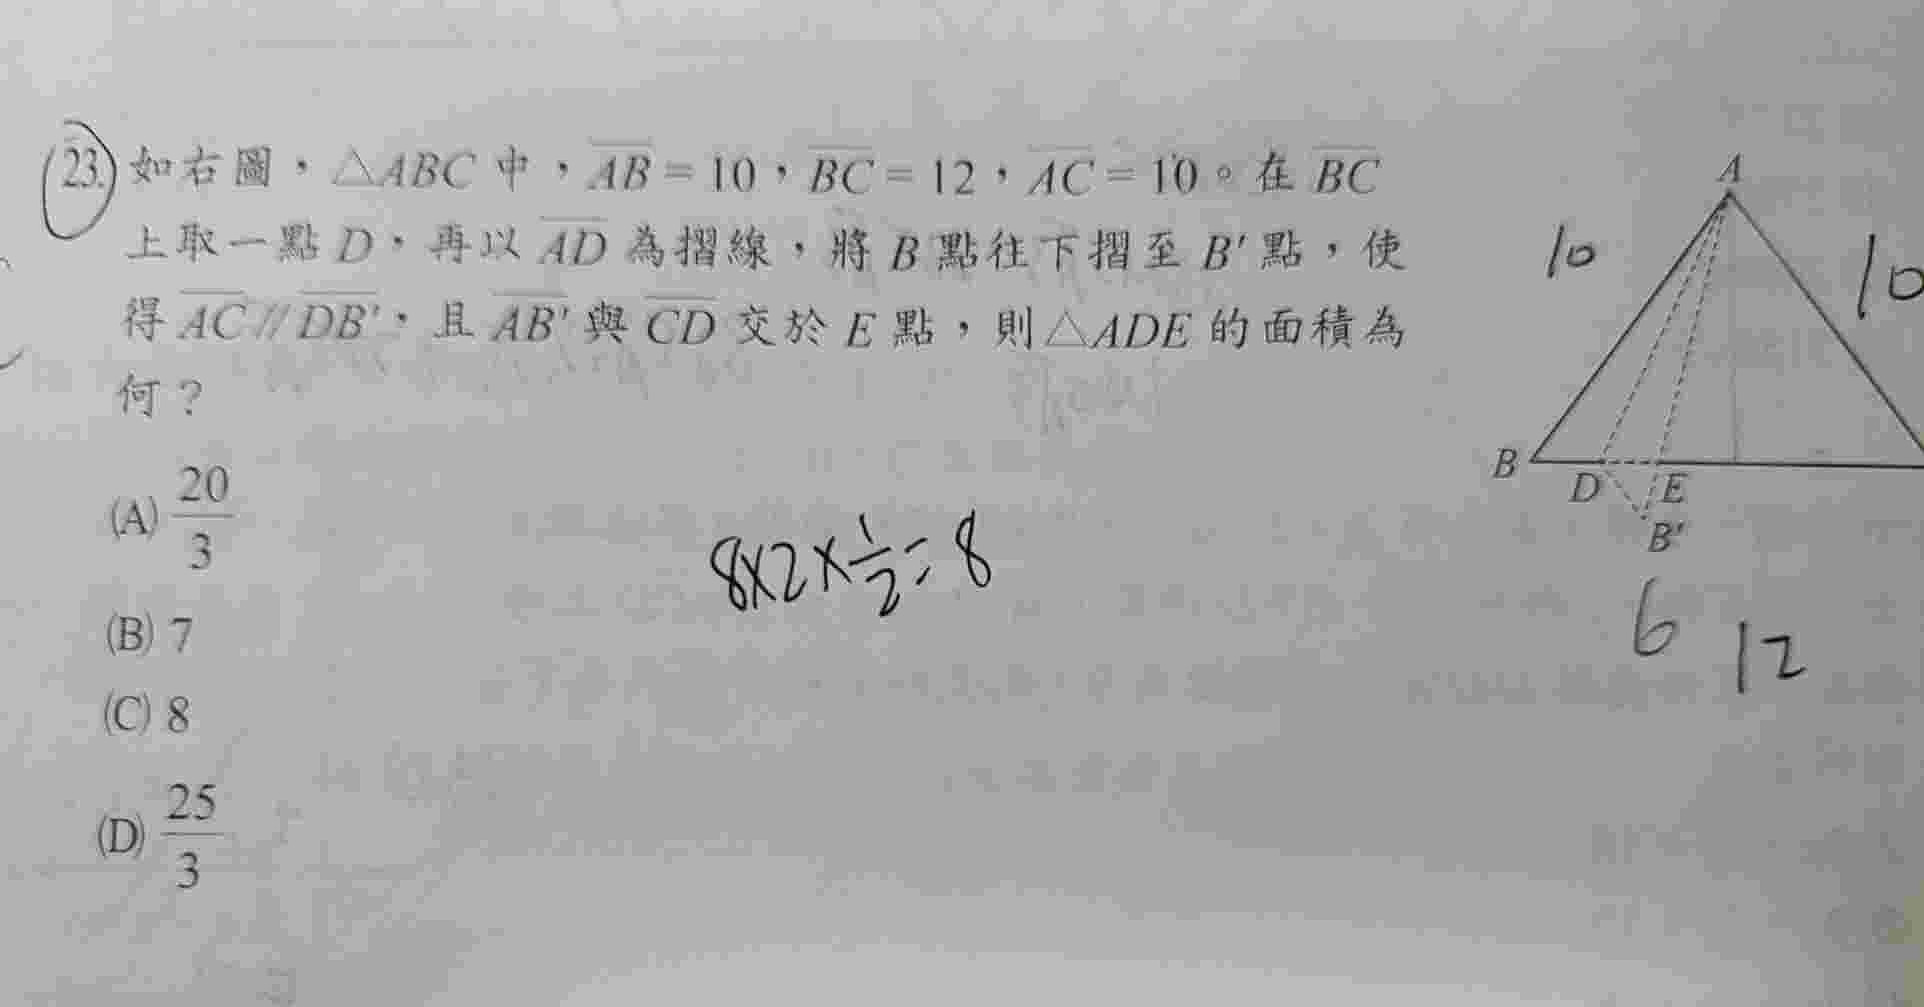 23. 如右圖，△ABC 中，AB = 10，BC = 12，AC = 10。在 BC
上取一點 D，再以 AD 為摺線，將 B 點往下摺至 B' 點，使
得 AC // DB'，且 AB' 與 CD 交於 E 點，則△ADE 的面積為
何？
(A) 20/3
(B) 7
(C) 8
(D) 25/3
8×2×1/2=8
A
10
10
B
D
E
B'
6
12